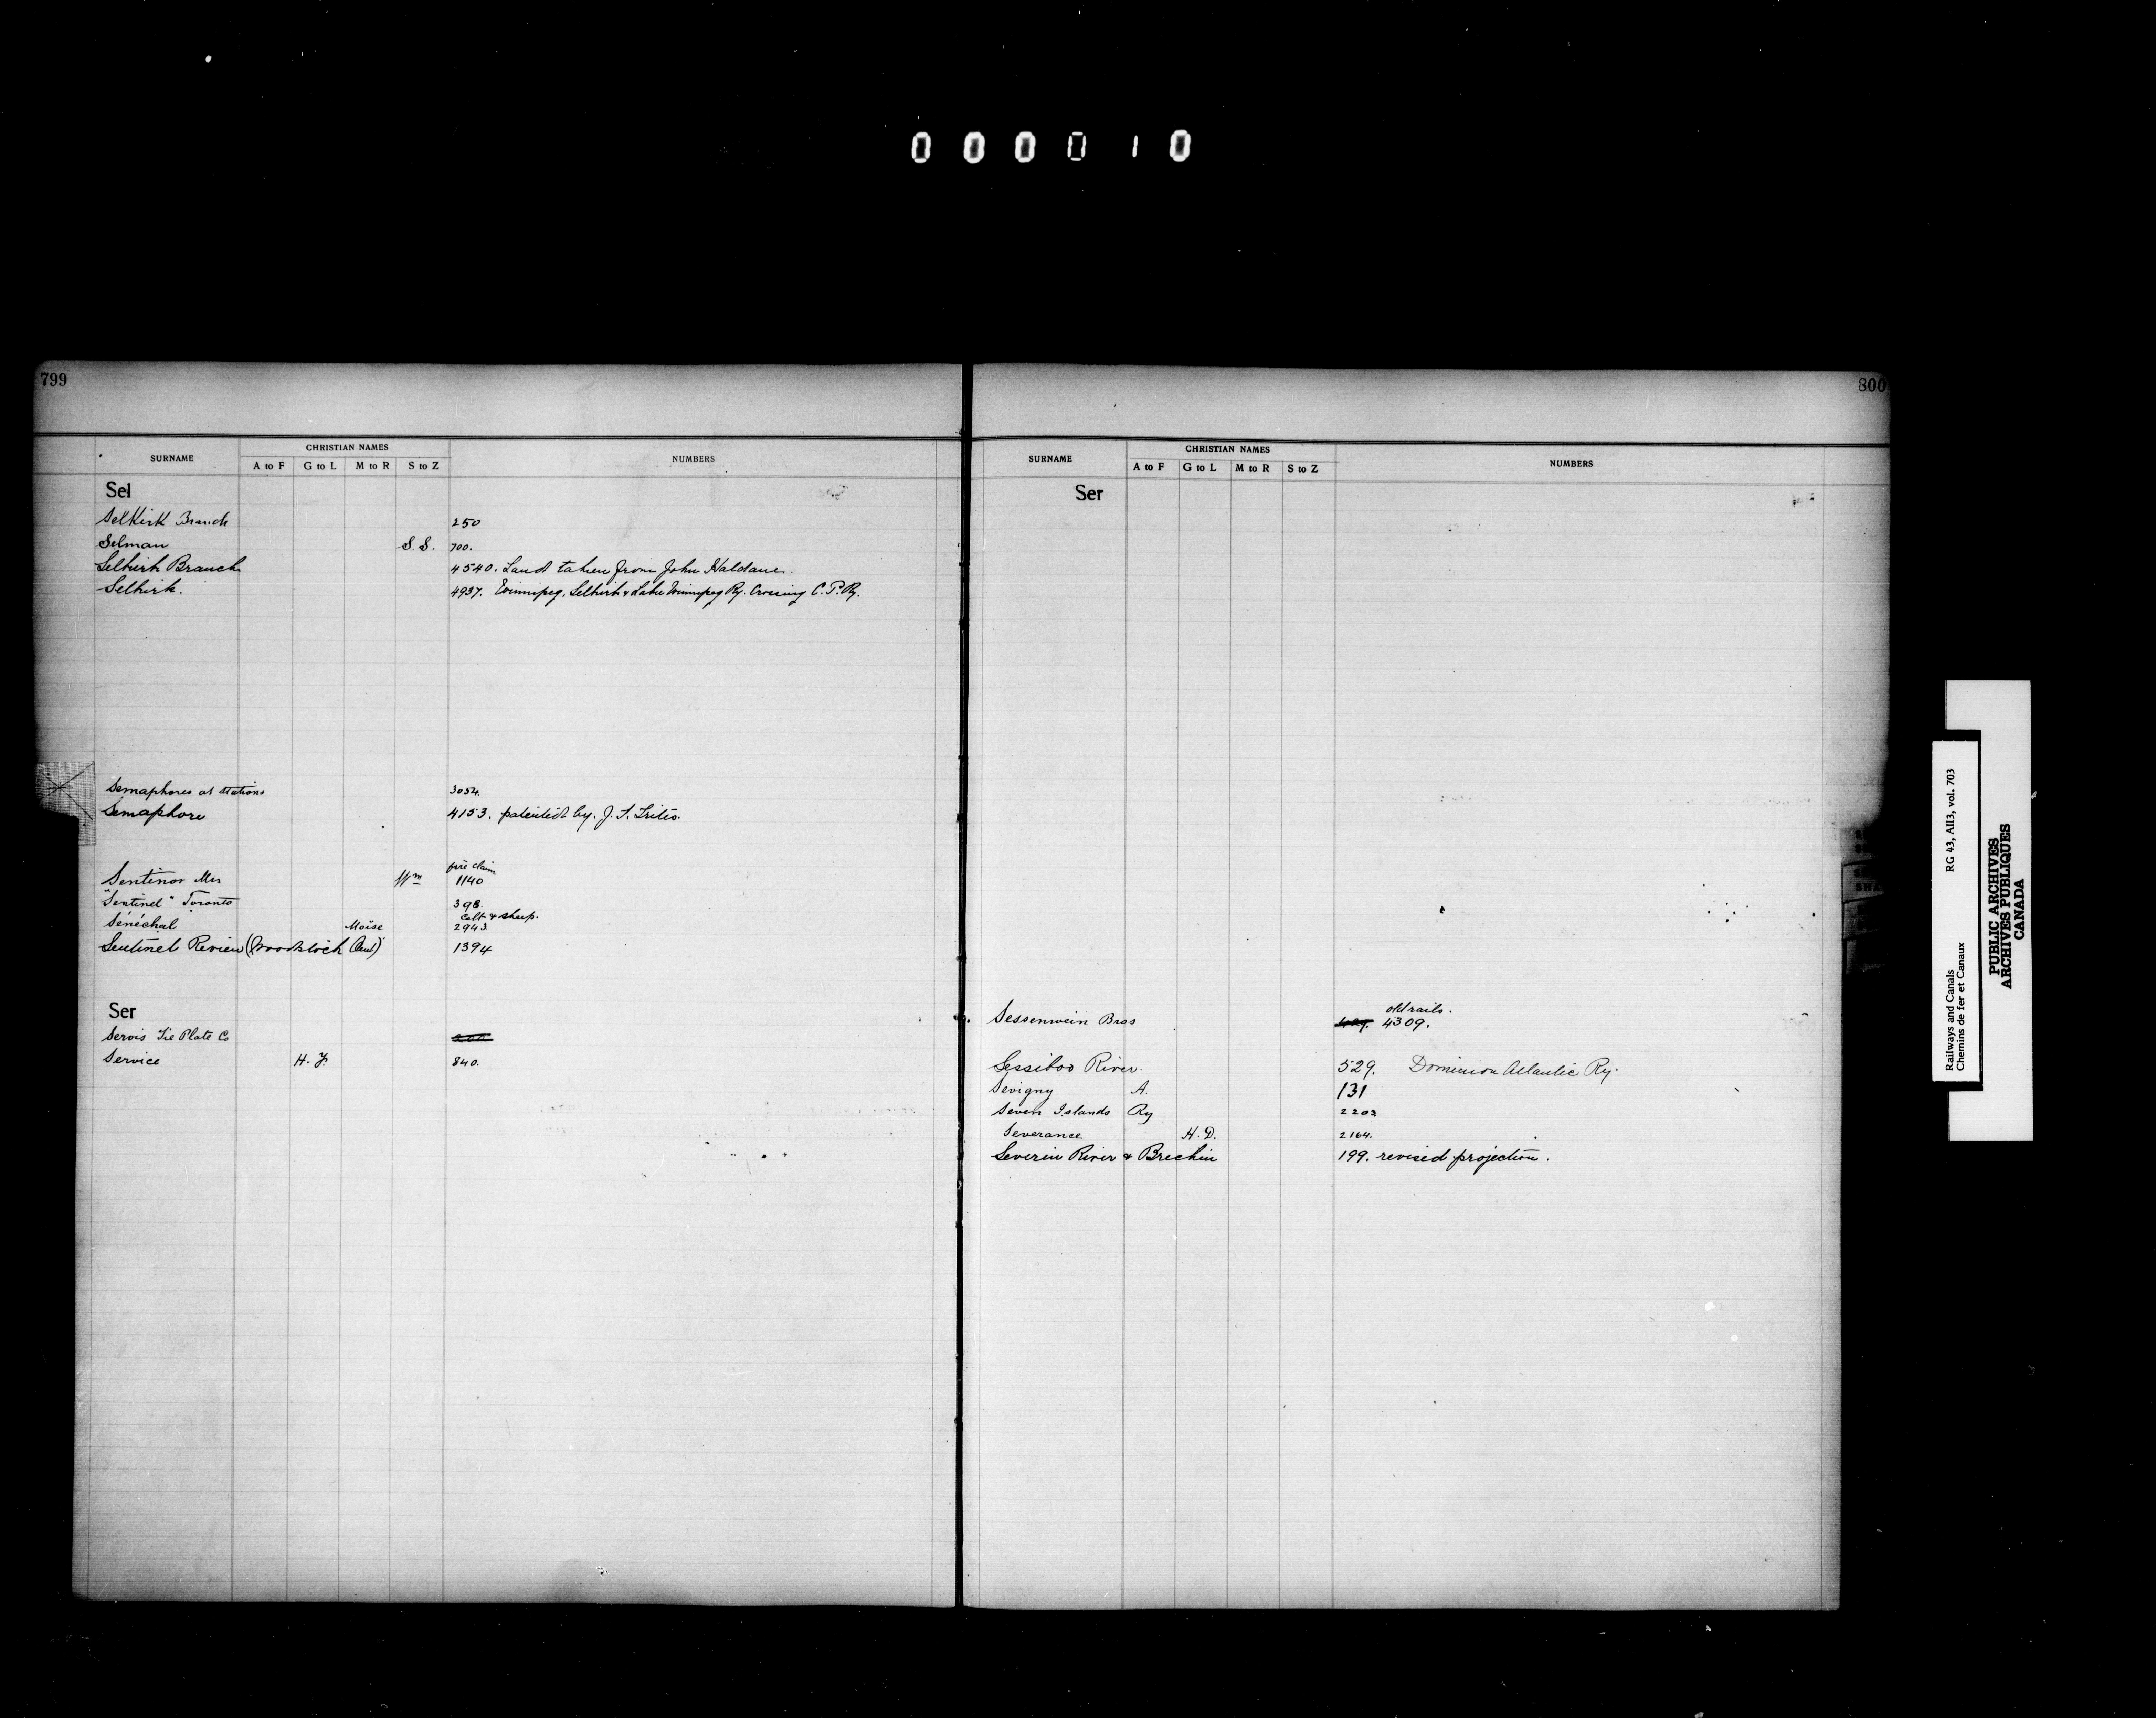 000010
799
SURNAME CHRISTIAN NAMES NUMBERS
A to F G to L M to R S to Z
Sel
Selkirk Branch 250
Selman S. S. 700.
Selkirk Branch 4540. Land taken from John Haldane.
Selkirk. 4937. Winnipeg, Selkirk & Lake Winnipeg Ry. Crossing C. P. Ry.
Semaphores at stations 3054.
Semaphore 4153. patented by. J. S. Trites.
fire claim
Sentinor Mrs Wm 1140
"Sentinel" Toronto 398.
Colt & sheep.
Sénéchal Moïse 2943
Sentinel Review (Woodstock Ont) 1394
Ser
Servis Tie Plate Co
Service H. F. 840.
800
SURNAME CHRISTIAN NAMES NUMBERS
A to F G to L M to R S to Z
Ser
old rails.
Sessenwein Bros 4309.
Sessiboo River. 529. Dominion Atlantic Ry.
Sevigny A. 131
Seven Islands Ry 2203
Severance H. D. 2164.
Severin River & Brechin 199. revised projection.
Railways and Canals RG 43, AII3, vol. 703
Chemins de fer et Canaux
PUBLIC ARCHIVES
ARCHIVES PUBLIQUES
CANADA